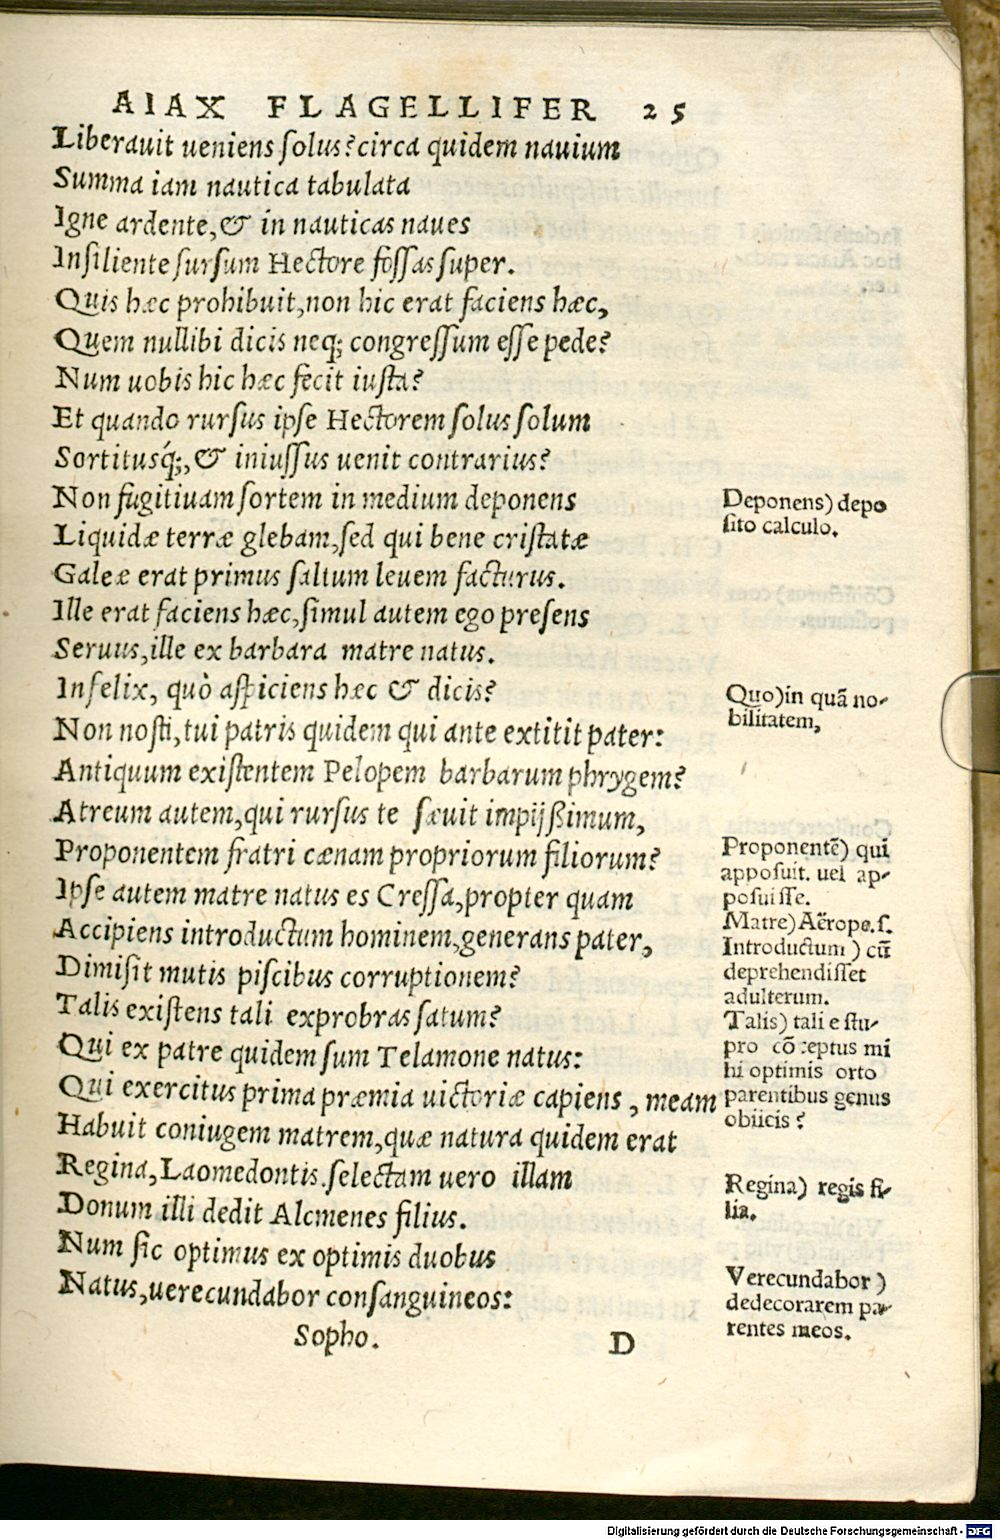 AIAX FLAGELLIFER 25
Liberauit ueniens ſolus? circa quidem nauium
Summa iam nautica tabulata
Igne ardente, & in nauticas naues
Inſiliente ſurſum Hectore foſſas ſuper.
Quis hæc prohibuit, non hic erat faciens hæc,
Quem nullibi dicis neq; congreſſum eſſe pede?
Num uobis hic hæc fecit iuſta?
Et quando rurſus ipſe Hectorem ſolus ſolum
Sortitusq́;, & iniuſſus uenit contrarius?
Non fugitiuam ſortem in medium deponens
Liquidæ terræ glebam, ſed qui bene criſtatæ
Galeæ erat primus ſaltum leuem facturus.
Ille erat faciens hæc, ſimul autem ego preſens
Seruus, ille ex barbara matre natus.
Infelix, quò aſpiciens hæc & dicis?
Non noſti, tui patris quidem qui ante extitit pater:
Antiquum exiſtentem Pelopem barbarum phrygem?
Atreum autem, qui rurſus te ſæuit impijßimum,
Proponentem fratri cænam propriorum filiorum?
Ipſe autem matre natus es Creſſa, propter quam
Accipiens introductum hominem, generans pater,
Dimiſit mutis piſcibus corruptionem?
Talis exiſtens tali exprobras ſatum?
Qui ex patre quidem ſum Telamone natus:
Qui exercitus prima præmia uictoriæ capiens, meam
Habuit coniugem matrem, quæ natura quidem erat
Regina, Laomedontis. ſelectam uero illam
Donum illi dedit Alcmenes filius.
Num ſic optimus ex optimis duobus
Natus, uerecundabor conſanguineos:
Sopho. D
Deponens) depo
ſito calculo.
Quo) in quã no-
bilitatem,
Proponentē) qui
appoſuit. uel ap-
poſuiſſe.
Matre) Aërope.ſ.
Introductum) cũ
deprehendiſſet
adulterum.
Talis) tali e ſtu-
pro cõceptus mi
hi optimis orto
parentibus genus
obiicis?
Regina) regis fi-
lia.
Verecundabor)
dedecorarem pa-
rentes meos.
Digitalisierung gefördert durch die Deutsche Forschungsgemeinschaft - DFG